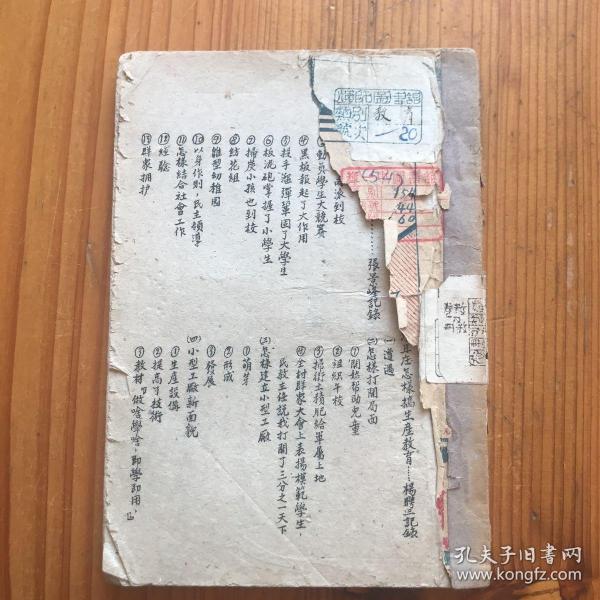 張景峰記錄
派到校
動員學生大競賽
④黑板報起了大作用
⑤投手溜彈鞏固了大學生
⑥板流砲掌握了小學生
⑦揚炭小孩也到校
⑧紡花組
⑨雛型幼稚園
⑩以身作則，民主領導
⑪怎樣結合社會工作
⑫經驗
⑬群眾拥护
庄怎樣搞生產教育……楊聘三記錄
㈠遭遇
㈡怎樣打開局面
①開始帮助兒童
②組織午校
③掃街土積肥給軍屬上地
④全村群眾大會上表揚模範學生，
民教主任說我打開了三分之一天下
㈢怎樣建立小型工廠
①萌芽
②形成
③發展
㈣小型工廠新面貌
①生產設備
②提高了技術
③教材『做啥學啥，即學即用，』
圖書館
類別
教育
號次
—20
154
44
60
孔夫子旧书网
www.kongfz.com